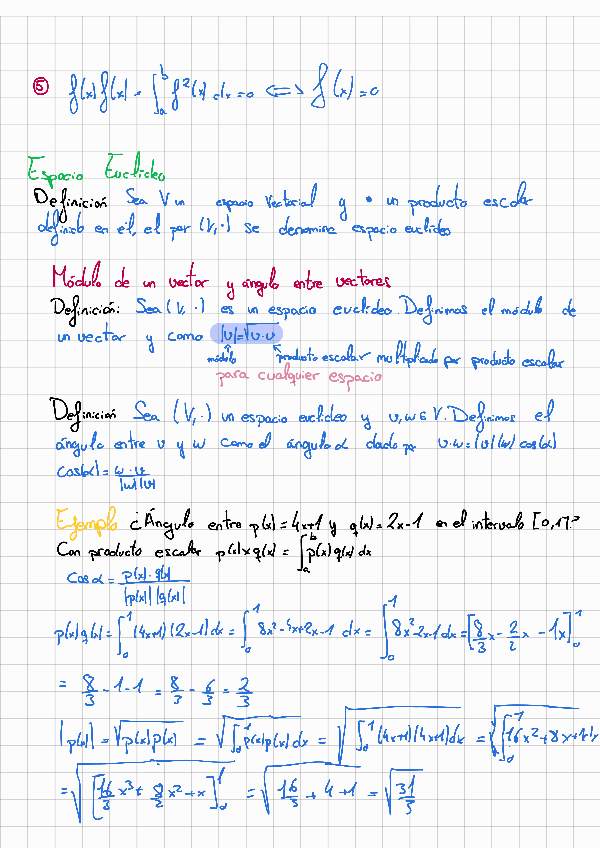 ⑤ f(x)f(x) = ∫_a^b f²(x) dx = 0 ⟺ f(x) = 0
Espacio Euclídeo
Definición Sea V un espacio vectorial y • un producto escalar
definido en él, el par (V,·) se denomina espacio euclídeo
Módulo de un vector y ángulo entre vectores
Definición: Sea (V, ·) es un espacio euclídeo. Definimos el módulo de
un vector y como |v|=√v·v
módulo producto escalar multiplicado por producto escalar
para cualquier espacio
Definición Sea (V,·) un espacio euclídeo y v,w ∈ V. Definimos el
ángulo entre v y w como el ángulo α dado por v·w=|v||w| cos(α)
cos(α) = w·v / |w||v|
Ejemplo ¿Ángulo entre p(x)=4x+1 y q(x)=2x-1 en el intervalo [0,1]?
Con producto escalar p(x)×q(x) = ∫_a^b p(x)q(x) dx
cos α = p(x)·q(x) / |p(x)| |q(x)|
p(x)q(x) = ∫_0^1 (4x+1)(2x-1)dx = ∫_0^1 8x²-4x+2x-1 dx = ∫_0^1 8x²-2x-1 dx = [8/3 x - 2/2 x - 1x]_0^1
= 8/3 - 1 - 1 = 8/3 - 6/3 = 2/3
|p(x)| = √p(x)p(x) = √∫_0^1 p(x)p(x) dx = √∫_0^1 (4x+1)(4x+1)dx = √∫_0^1 16x²+8x+1dx
= √[16/3 x³ + 8/2 x² + x]_0^1 = √16/3 + 4 + 1 = √31/3